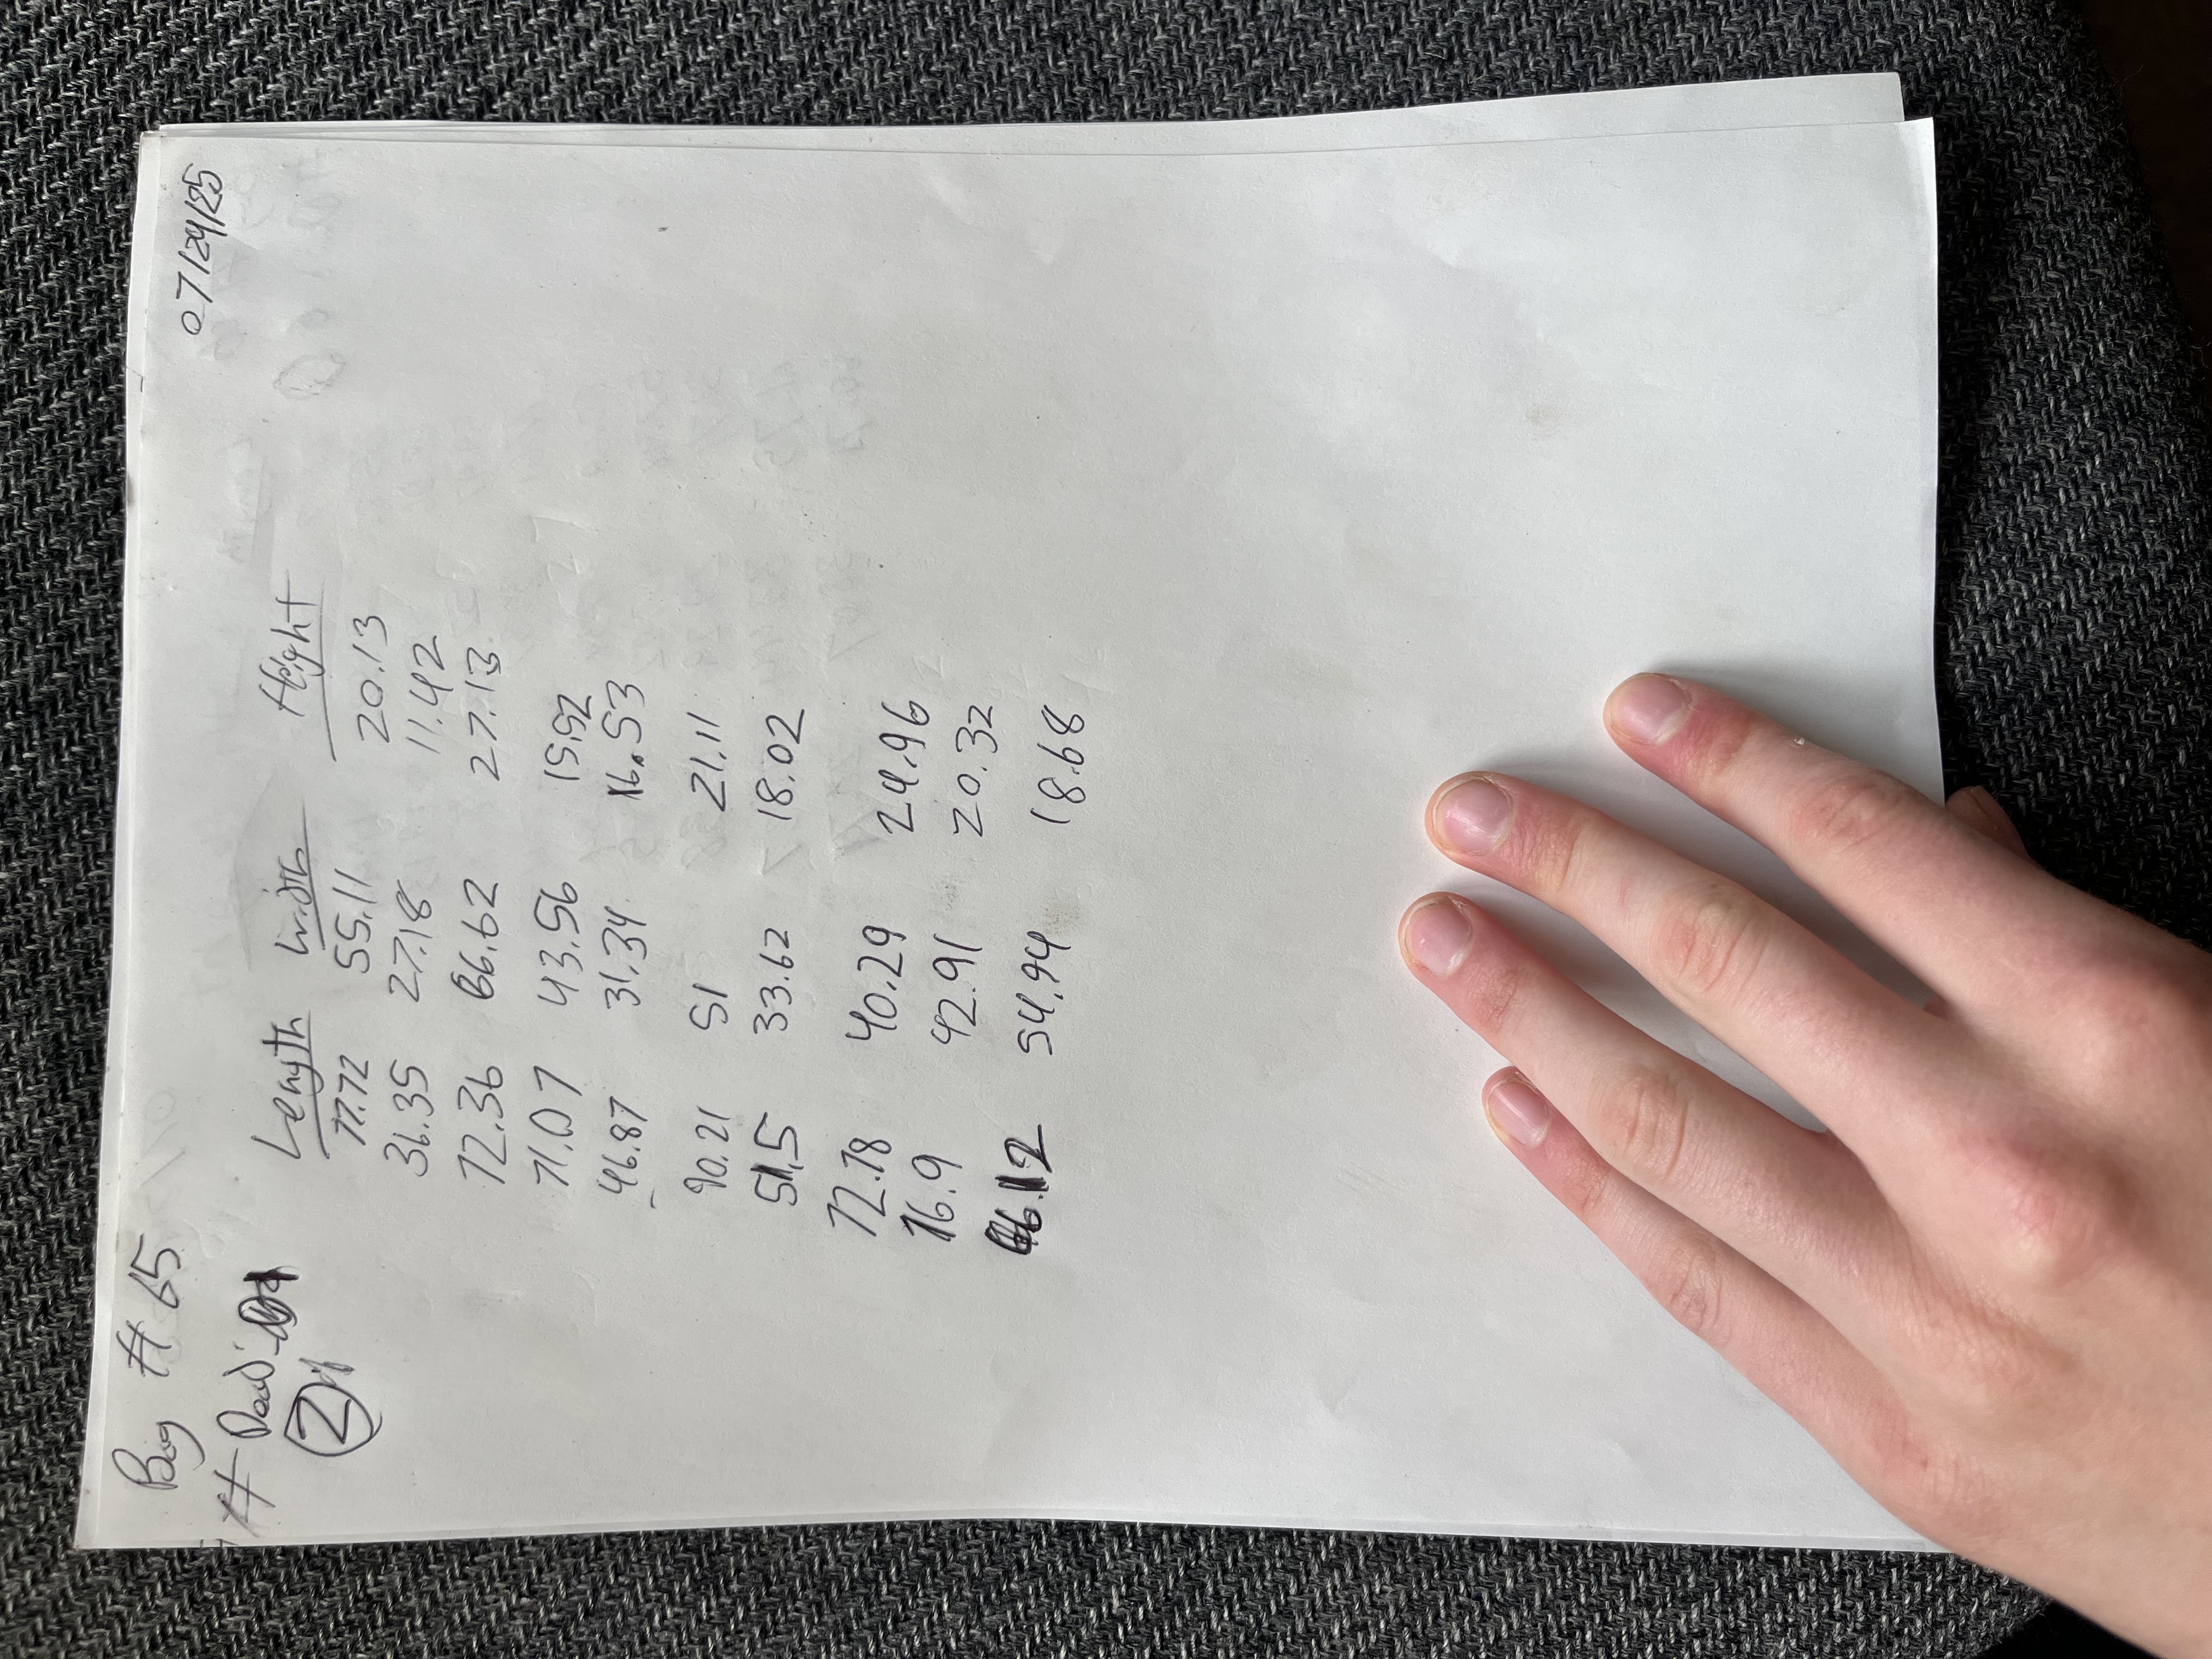 Bag # 65
07/24/25
# Dead:
2
Length Width Height
77.72 55.11 20.13
36.35 27.18 11.42
72.36 66.62 27.13
71.07 43.56 15.52
46.87 31.34 16.53
90.21 51 21.11
51.5 33.62 18.02
72.78 40.29 24.96
76.9 42.91 20.32
66.12 54.94 18.68